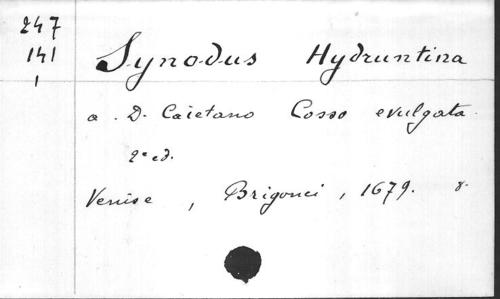 247
141
1
Synodus Hydruntina
a D. Caietano Cosso evulgata.
2e ed.
Venise, Brigonci, 1679. 8.